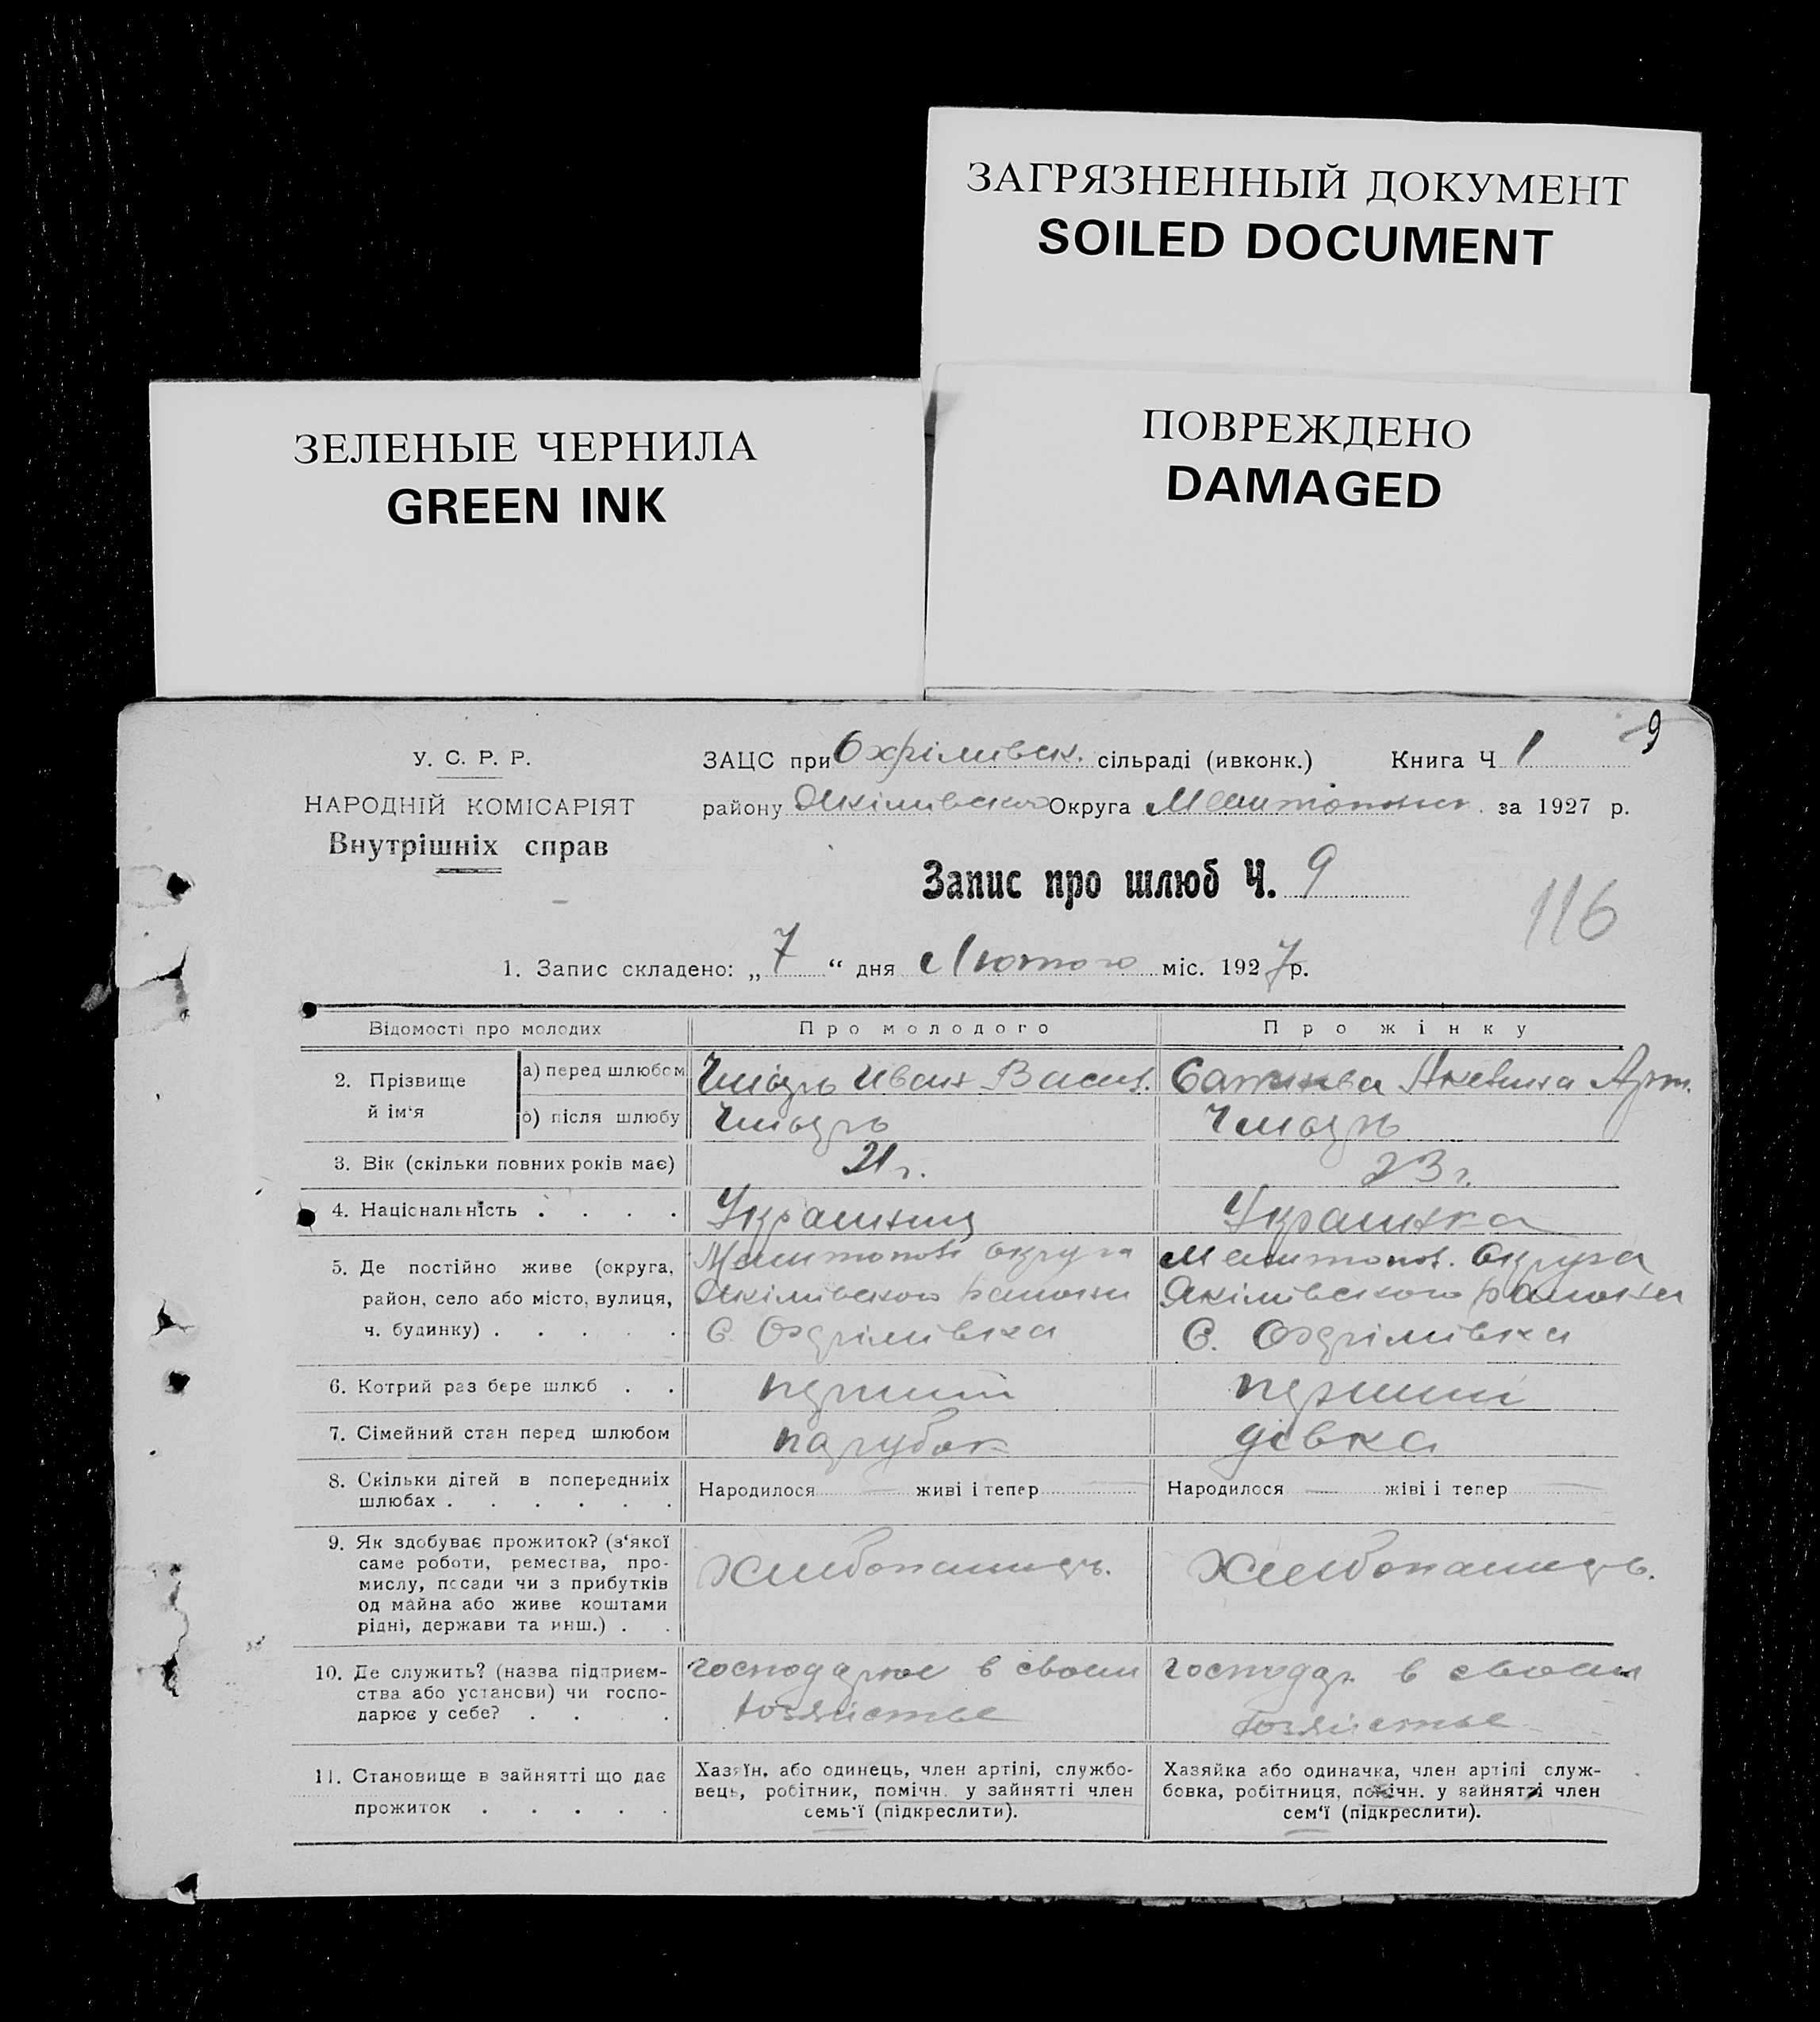 ЗАГРЯЗНЕННЫЙ ДОКУМЕНТ
SOILED DOCUMENT
ЗЕЛЕНЫЕ ЧЕРНИЛА
GREEN INK
ПОВРЕЖДЕНО
DAMAGED
9
У. С. Р. Р.
НАРОДНІЙ КОМІСАРІЯТ
Внутрішніх справ
ЗАЦС при Охрімівск. сільраді (ивконк.) Книга Ч 1
району Якімівского Округа Мелитопольск. за 1927 р.
Запис про шлюб Ч. 9
116
1. Запис складено: „ 7 “ дня Лютого міс. 1927 р.
Відомості про молодих Про молодого Про жінку
2. Прізвище й ім‘я
а) перед шлюбом Иван Васил. Арт.
б) після шлюбу
3. Вік (скільки повних років має) 21 г. 23 г.
4. Національність . . . . Українец Українка
5. Де постійно живе (округа, Мелитопол. округа Мелитопол. Округа
район, село або місто, вулиця, Якімівского района Якімівского района
ч. будинку) . . . . . С. Охрімівка С. Охрімівка
6. Котрий раз бере шлюб . . перший перший
7. Сімейний стан перед шлюбом парубок дівка
8. Скільки дітей в попередниіх Народилося — живі і тепер — Народилося — жіві і тепер —
шлюбах . . . . . .
9. Як здобуває прожиток? (з‘якої
саме роботи, ремества, про-
мислу, посади чи з прибутків
од майна або живе коштами
рідні, держави та инш.) . .
Хлибопашець. Хлибопашець.
10. Де служить? (назва підприєм- господарює в своем господар. в своем
ства або установи) чи госпо- хозяйстве хозяйстве
дарює у себе? . . . .
11. Становище в зайнятті що дає
прожиток . . . . .
Хазяїн, або одинець, член артілі, службо-
вець, робітник, помічн. у зайнятті член
семь‘ї (підкреслити).
Хазяйка або одиначка, член артілі служ-
бовка, робітниця, помічн. у зайнятті член
сем‘ї (підкреслити).